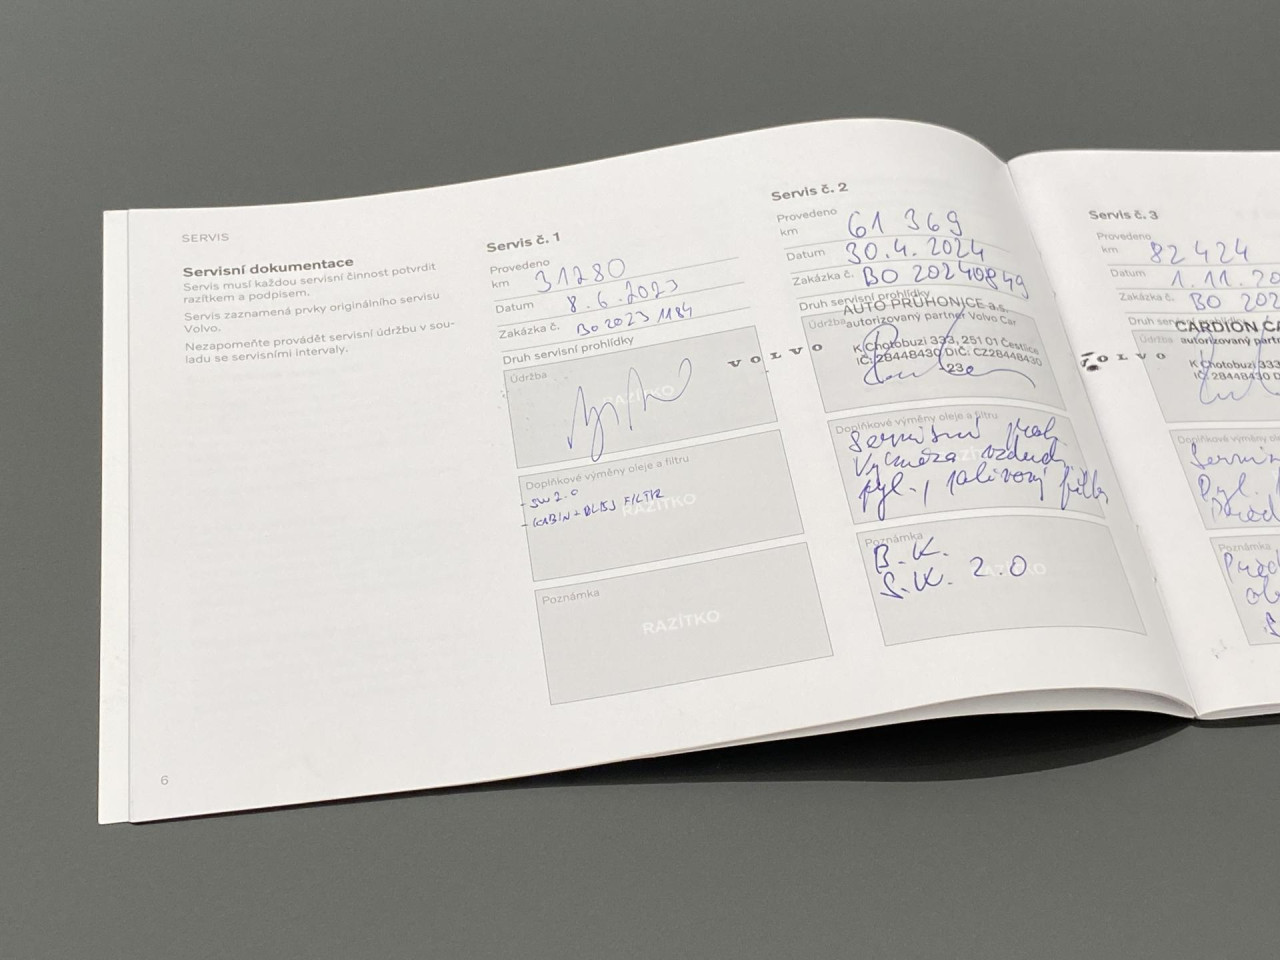 SERVIS
Servisní dokumentace
Servis musí každou servisní činnost potvrdit
razítkem a podpisem.
Servis zaznamená prvky originálního servisu
Volvo.
Nezapomeňte provádět servisní údržbu v sou-
ladu se servisními intervaly.
6
Servis č. 1
Provedeno
km 31280
Datum 8.6.2023
Zakázka č. BO 2023 1184
Druh servisní prohlídky
Údržba
RAZÍTKO
Doplňkové výměny oleje a filtru
RAZÍTKO
- SW 2.0
- KABIN + FILTR
Poznámka
RAZÍTKO
VOLVO
Servis č. 2
Provedeno
km 61 369
Datum 30.4.2024
Zakázka č. BO 20240849
Druh servisní prohlídky
AUTO PRŮHONICE a.s.
Údržba autorizovaný partner Volvo Car
K Chotobuzi 333, 251 01 Čestlice
IČ: 28448430 DIČ: CZ28448430
-23-
Doplňkové výměny oleje a filtru
Servisní proh.
Výměna vzduch,
pyl., palivový filtr
Poznámka
RAZÍTKO
B.K.
S.W. 2.0
VOLVO
Servis č. 3
Provedeno
km 82424
Datum 1.11.20
Zakázka č. BO 202
Druh servisní prohlídky
CARDION CA
Údržba autorizovaný partn
K Chotobuzi 333
IČ: 28448430 D
Doplňkové výměny ole
Servisn
Pyl.
Poznámka